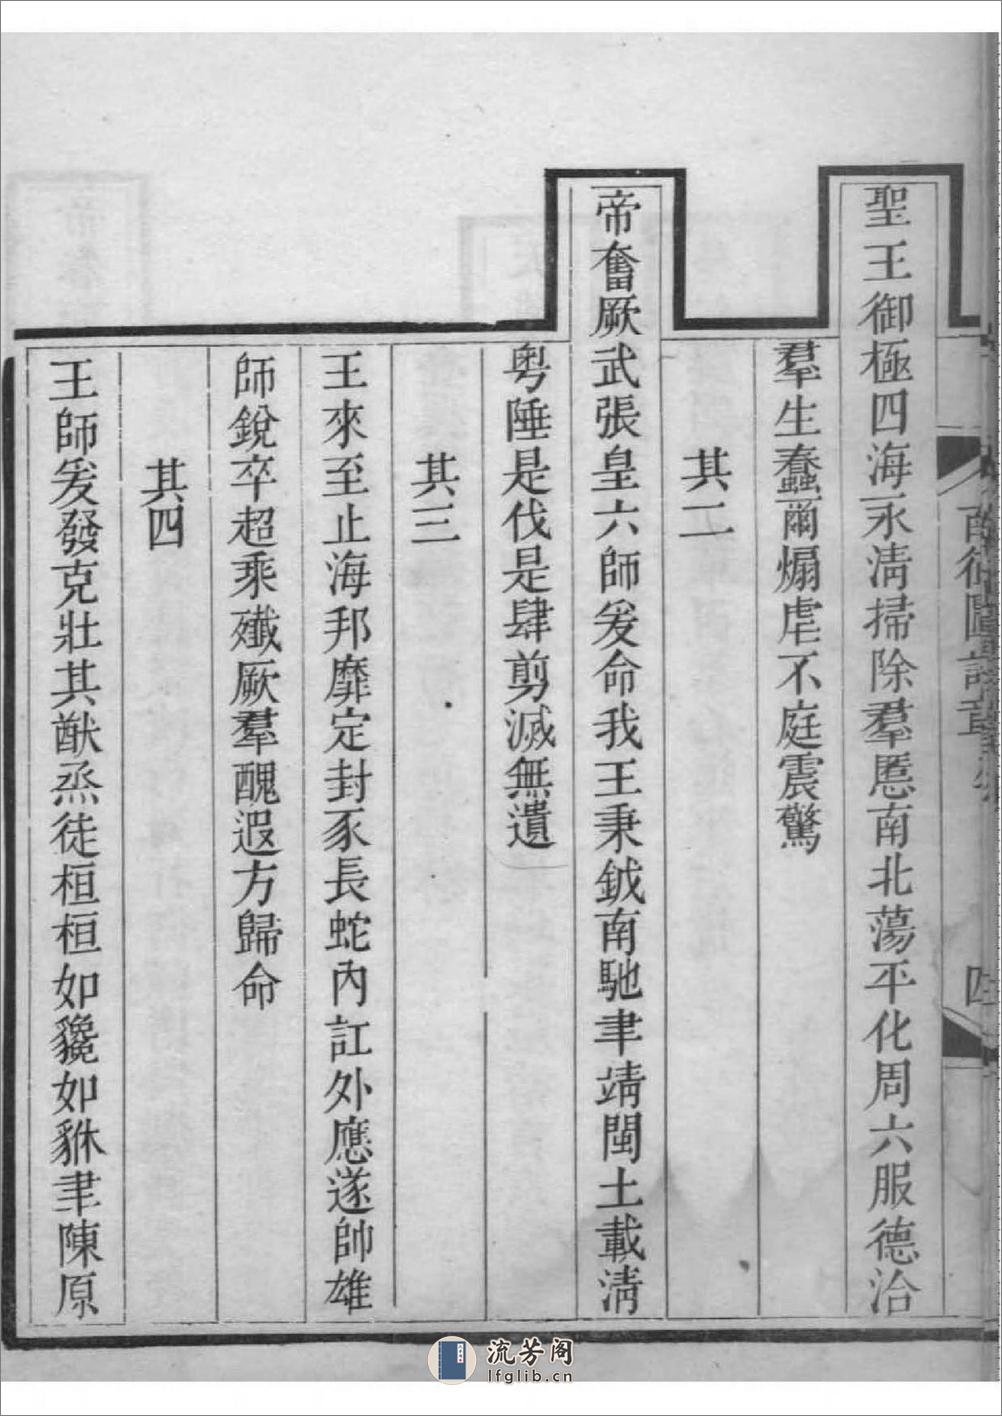 聖王御極四海永淸掃除羣慝南北蕩平化周六服德洽
羣生蠢爾煽虐不庭震驚
其二
帝奮厥武張皇六師爰命我王秉鉞南馳聿靖閩土載淸
粤陲是伐是肆剪滅無遺
其三
王來至止海邦靡定封豕長蛇內訌外應遂帥雄
師銳卒超乘殲厥羣醜遐方歸命
其四
王師爰發克壯其猷烝徒桓桓如貔如貅聿陳原
流芳阁
lfglib.cn